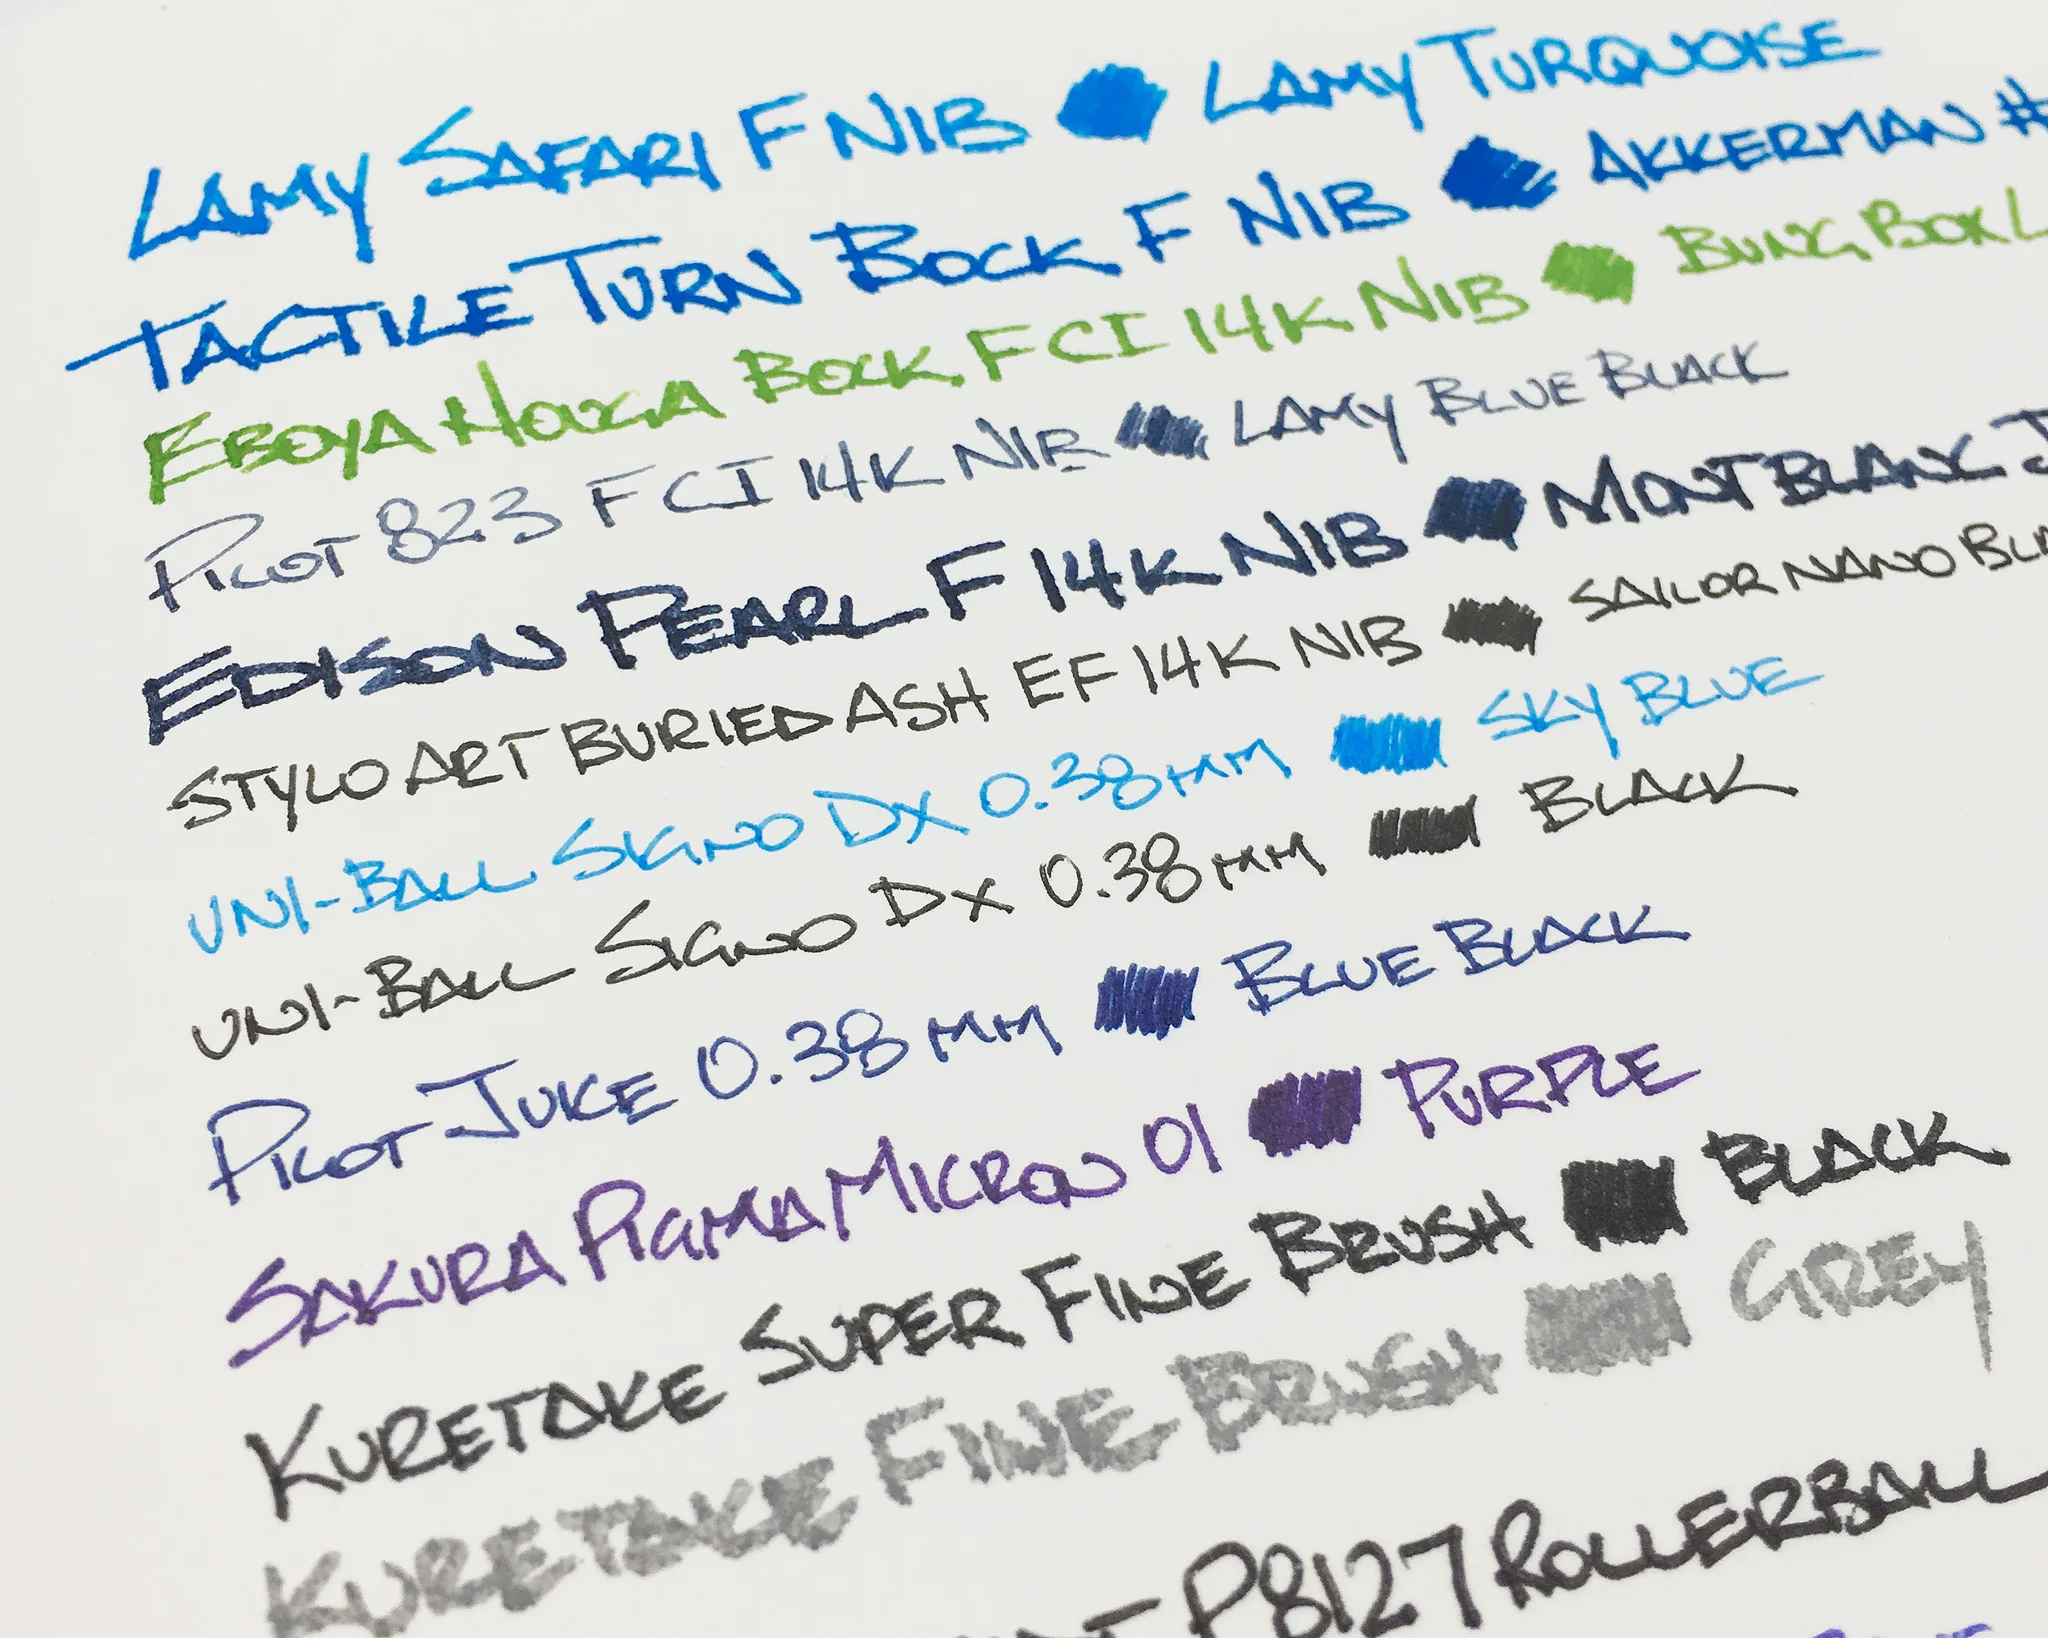 LAMY SAFARI F NIB LAMY TURQUOISE
TACTILE TURN BOCK F NIB AKKERMAN #
EBOYA HOUGA BOCK FCI 14K NIB BUNG BOX L
PILOT 823 FCI 14K NIB LAMY BLUE BLACK
EDISON PEARL F 14K NIB MONTBLANC J
STYLO ART BURIED ASH EF 14K NIB SAILOR NANO BLA
UNI-BALL SIGNO DX 0.38MM SKY BLUE
UNI-BALL SIGNO DX 0.38MM BLACK
PILOT JUKE 0.38MM BLUE BLACK
SAKURA PIGMA MICRON 01 PURPLE
KURETAKE SUPER FINE BRUSH BLACK
KURETAKE FINE BRUSH GREY
P8127 ROLLERBALL